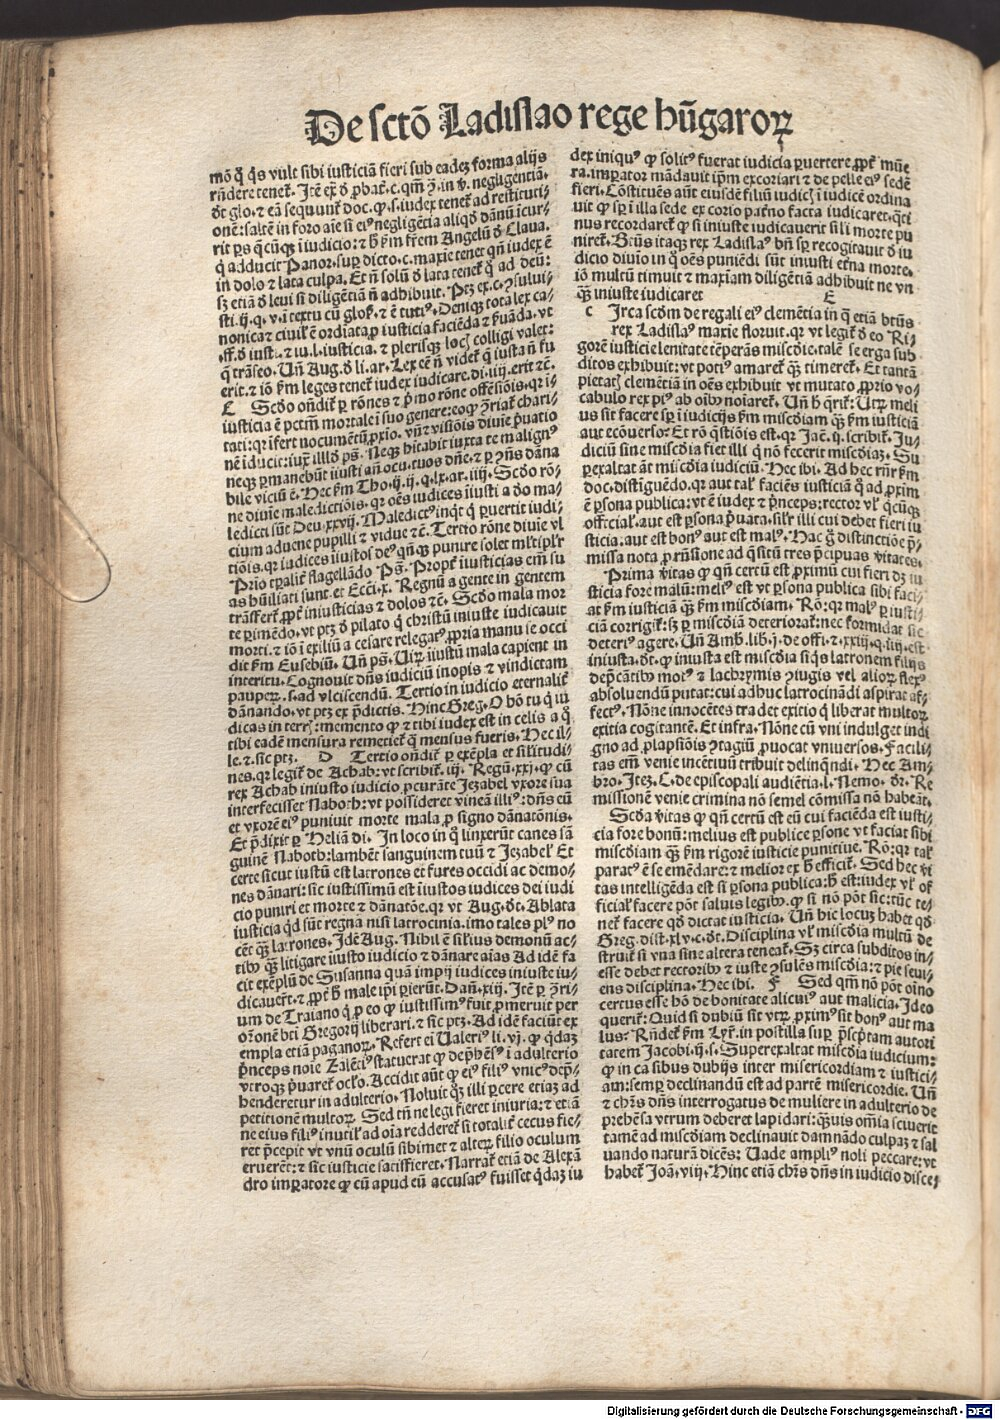 De sctō Ladislao rege hūgaroꝝ
mō ꝙ qͥs vult sibi iusticiā fieri sub eadeꝫ forma alijs
rñdere tenet᷑. Itē ex ꝺ ꝓbat᷑. c. qm̄ ꝯ̄. in ꝟ. negligentiā.
ꝺt glo. ⁊ eā sequunt᷑ doc. ꝙ. s. iudex tenet᷑ ad restituti⸗
onē: saltē in foro aīe si ei⁹ negligētia aliqḋ dānū īcur⸗
rit ꝑs
q̇ adducit Panor. suꝑ dicto. c. maxīe tenet᷑ qn̄ iudex ē
in dolo ⁊ lata culpa. Et n̄ solū ꝺ lata tenet᷑ q̇ ad deū:
sꝫ etiā ꝺ leui si diligētiā n̄ adhibuit.
nonica ⁊ ciuil᷑ ē ordiata ꝓ iusticia faciēda ⁊ ẜuāda. vt
.ff. ꝺ iusti. ⁊ iu. l. iusticia. ⁊ plerisqꝫ locꝭ colligi valet:
q̇ trāseo. Vn̄ Aug. ꝺ li. ar. Lex eē n̄ videt᷑ q̄ iusta n̄ fu
erit. ⁊ iō ẜm leges tenet᷑ iudex iudicare. di. iiij. erit ⁊c̄.
C Scḋo on̄dit᷑ ꝑ rōnes ⁊ p̄mo rōne offēsiōis. qꝛ i⸗
iusticia ē pctm̄ mortale i suo genere: eo ꝙ ꝯ̄riat᷑ chari⸗
tati: qꝛ īfert nocumētū ꝓxio. vn̄ ⁊ visiōis diuīe p̄uatio
nē īducit: iux̄ illḋ ps̄. Neqꝫ hītabit iuxta te malign⁹
neqꝫ ꝑmanebūt iiusti añ ocu. tuos dn̄e. ⁊ ꝑ ꝯn̄s dāna
bile viciū ē. Hec ẜm Tho. ij. ij. q. lx. ar. iiij. Scḋo rō⸗
ne diuīe maledictiōis. qꝛ oēs iudices iiusti a ꝺo ma⸗
ledicti sūt Deu. xxvij. Maledict⁹ inq̇t q̇ ꝑuertit iudi⸗
cium aduene pupilli ⁊ vidue ⁊c̄. Tertio rōne diuīe vl
tiōis. qꝛ iudices iiustos de⁹ qn̄qꝫ punire solet ml̄tiplr̄
Prīo tꝑalit᷑ flagellādo Ps̄. Propt᷑ iiusticias em̄ su
as hūiliati sunt. et Ecci. x. Regnū a gente in gentem
trāsfert᷑ ꝓpt᷑ iniusticias ⁊ dolos ⁊c̄. Scḋo mala mor
te ꝑimēdo. vt ptꝫ ꝺ pilato q̇ christū iniuste iudicauit
morti. ⁊ iō i exiliū a cesare relegat⁹ ꝓpria manu se occi
dit ẜm Eusebiū. Vn̄ ps̄. Uirꝝ iiustū mala capient in
interitu. Cognouit dn̄s iudiciū inopis ⁊ vindictam
pauperꝝ. s. ad vlciscendū. Tertio in iudicio eternalit᷑
dānando. vt ptꝫ ex p̄dictis. Hinc Greg. O hō tu q̇ iu
dicas in terrꝭ: memento ꝙ ⁊ tibi iudex est in celis a q̊
tibi eadē mensura remetiet᷑ q̄ mensus fueris. Hec il⸗
le. ⁊ sic ptꝫ. D Tertio on̄dit᷑ ꝑ exēpla et sil̄itudi⸗
nes. qꝛ legit᷑ de Achab: vt scribit᷑. iij. Regū. xxj. ꝙ cū
rex Achab iniusto iudicio ꝓcurāte Jezabel vxore sua
interfecisset Naboth: vt possideret vineā illi⁹: dn̄s eū
et vxorē ei⁹ puniuit morte mala ꝓ signo dānatōnis.
Et p̄dixit ꝑ Heliā di. In loco in q̊ linxerūt canes sā
guinē Naboth: lambēt sanguinem tuū ⁊ Jezabel᷑ Et
certe sicut iustū est latrones et fures occidi ac demo⸗
nes dānari: sic iustissimū est iiustos iudices dei iudi
cio puniri et morte ⁊ dānatōe. qꝛ vt Aug. ꝺt. Ablata
iusticia qd sūt regna nisi latrocinia. imo tales pl⁹ no
cēt qꝫ̄ latrones. Idē Aug. Nihil ē sil̄ius demonū ac⸗
tibꝰ qꝫ̄ litigare iiusto iudicio ⁊ dānare aīas Ad idē fa
cit exēplū de Susanna quā impij iudices iniuste iu⸗
dicauer̄t. ⁊ ꝓpt᷑ ḣ male ip̄i ꝑierūt. Dan̄. xiij. Itē ꝑ ꝯ̄ri⸗
um de Traiano q̇ ꝓ eo ꝙ iustissim⁹ fuit ꝓmeruit per
or̄onē bt̄i Gregorij liberari. ⁊ sic ptꝫ. Ad idē faciūt ex
empla etiā paganoꝝ. Refert ei Ualeri⁹ li. vj. ꝙ q̇daꝫ
p̄nceps noīe Zalēc⁹ statuerat ꝙ dep̄hēs⁹ i adulterio
vtroqꝫ p̄uaret᷑ ocl̄o. Accidit aūt ꝙ ei⁹ fili⁹ vnic⁹ dep̄⸗
henderetur in adulterio. Noluit qꝫ̄ illi ꝑcere etiaꝫ ad
petitionē multoꝝ. Sed tn̄ ne legi fieret iniuria: ⁊ etiā
ne eius fili⁹ inutil᷑ ad oīa redderet᷑ si totalit᷑ cecus fie⸗
ret p̄cepit vt vnū oculū sibimet ⁊ alterꝝ filio oculum
eruerēt: ⁊ sic iusticie satisfieret. Narrat᷑ etiā de Alexā
dro imꝑatore ꝙ cū apud eū accusat⁹ fuisset q̇daꝫ iu
dex iniqu⁹ ꝙ solit⁹ fuerat iudicia ꝑuertere ꝓpt᷑ mūe
ra. imꝑator mādauit ip̄m excoriari ⁊ de pelle ei⁹ sedē
fieri. Cōstituēs aūt eiusdē filiū iudicꝭ ī iudicē ordina
uit ꝙ sꝑ ī illa sede ex corio pat̄no facta iudicaret. q̇ti
nus recordaret᷑ ꝙ si iniuste iudicauerit sil̄i morte pu
niret᷑. Bt̄us itaqꝫ rex Ladisla⁹ bn̄ sꝑ recogitauit ꝺ iu
dicio diuīo in q̊ oēs puniēdi sūt iniusti et̄na morte.
iō multū timuit ⁊ maxīam diligētiā adhibuit ne vn
qꝫ̄ iniuste iudicaret E
c Irca scḋm de regali ei⁹ clemētia in q̄ etiā bt̄us
rex Ladisla⁹ maxīe floruit. qꝛ vt legit᷑ ꝺ eo Ri⸗
gorē iusticie lenitate tēperās miscḋie. talē se erga sub
ditos exhibuit: vt poti⁹ amaret᷑ qꝫ̄ timeret᷑. Et tantā
pietatꝭ clemētiā in oēs exhibuit vt mutato ꝓprio vo⸗
cabulo rex pi⁹ ab oībꝰ noīaret᷑. Un̄ ḣ q̄rit᷑: Utrꝝ meli
us sit facere sꝑ ī iudicijs ẜm miscḋiam qꝫ̄ ẜm iusticiā
aut ecōuerso. Et rō q̄stiōis est. qꝛ Jac̄. ij. scribit᷑. Ju⸗
diciū sine miscḋia fiet illi q̇ nō fecerit miscḋiaꝫ. Su
ꝑexaltat āt miscḋia iudiciū. Hec ibi. Ad hec rn̄r ẜm
doc. distīguēdo. qꝛ aut tal᷑ faciēs iusticiā q̊ ad ꝓxim
ē ꝑsona publica: vt ē iudex ⁊ p̄nceps: rector vl᷑ q̇cūqꝫ
official᷑. aut est ꝑsona p̄uata. sil̄r illi cui debet fieri iu
sticia. aut est bon⁹ aut est mal⁹. Hac g̊ distinctiōe p̄⸗
missa nota ꝓ rn̄sione ad q̄situ tres p̄cipuas v̄itates.
Prima v̄itas ꝙ qn̄ certū est ꝓximū cui fieri dꝫ iu
sticia fore malū: meli⁹ est vt ꝑsona publica sibi faci⸗
at ẜm iusticiā qꝫ̄ ẜm miscḋiam. Rō: qꝛ mal⁹ ꝑ iusti⸗
ciā corrigit᷑: sꝫ ꝑ miscḋiā deteriorat᷑: nec formidat sic
deteri⁹ agere. Un̄ Amb. lib. j. de offi. ⁊. xxiij. q. iiij. est
iniusta. ꝺt. ꝙ iniusta est miscḋia si q̇s latronem filijs
dep̄cātibꝰ mot⁹ ⁊ lachrymis ꝯiugis vel alioꝝ flex⁹
absoluendū putat: cui adhuc latrocinādi aspirat af⸗
fect⁹. Nōne innocētes tradet exitio q̇ liberat multoꝝ
exitia cogitantē. Et infra. Nōne cū vni indulget indi
gno ad ꝓlapsiōis ꝯtagiū ꝓuocat vniuersos. Facili⸗
tas em̄ venie incētiuū tribuit delinqn̄di. Hec Am⸗
bro. Iteꝫ. C. de episcopali audiētia. l. Nemo. ꝺr. Re
missionē venie crimina nō semel cōmissa nō habeāt.
Scḋa v̄itas ꝙ qn̄ certū est eū cui faciēda est iusti⸗
cia fore bonū: melius est publice ꝑsone vt faciat sibi
miscḋiam qꝫ̄ ẜm rigorē iusticie punitiue. Rō: qꝛ tal᷑
parat⁹ ē se emēdare: ⁊ melior ex ḣ efficit᷑. Sed hec v̄i
tas intelligēda est si ꝑsona publica: ḣ est: iudex vl᷑ of
ficial᷑ facere pōt saluis legibꝰ. ꝙ si nō pōt sic: tūc te⸗
net᷑ facere qḋ dictat iusticia. Un̄ hic locuꝫ habet qḋ
Greg. dist. xlv. c. ꝺt. Disciplina vl᷑ miscḋia multū de
struit᷑ si vna sine altera teneat᷑. Sꝫ circa subditos in⸗
esse debet rectoribꝰ ⁊ iuste ꝯsulēs miscḋia: ⁊ pie seui⸗
ens disciplina. Hec ibi. F Sed qm̄ nō pōt oīno
certus esse hō de bonitate alicui⁹ aut malicia. Ideo
querit᷑: Quid si dubiū sit vtrꝝ ꝓxim⁹ sit bon⁹ aut ma
lus. Rn̄det᷑ ẜm Lyr̄. in postilla suꝑ p̄scp̄tam autori
tatem Jacobi. ij. s. Superexaltat miscḋia iudicium:
ꝙ in casibus dubijs inter misericordiam ⁊ iustici⸗
am: semꝑ declinandū est ad partē misericordie. Un̄
⁊ chr̄s dn̄s interrogatus de muliere in adulterio de
prehēsa vtrum deberet lapidari: qꝫ̄uis om̄ia sciuerit
tamē ad miscḋiam declinauit damnādo culpaꝫ ⁊ sal
uando naturā dicēs: Uade ampli⁹ noli peccare: vt
habet᷑ Joā. viij. Hinc etiā chr̄s dn̄s in iudicio disce⸗
Digitalisierung gefördert durch die Deutsche Forschungsgemeinschaft - DFG